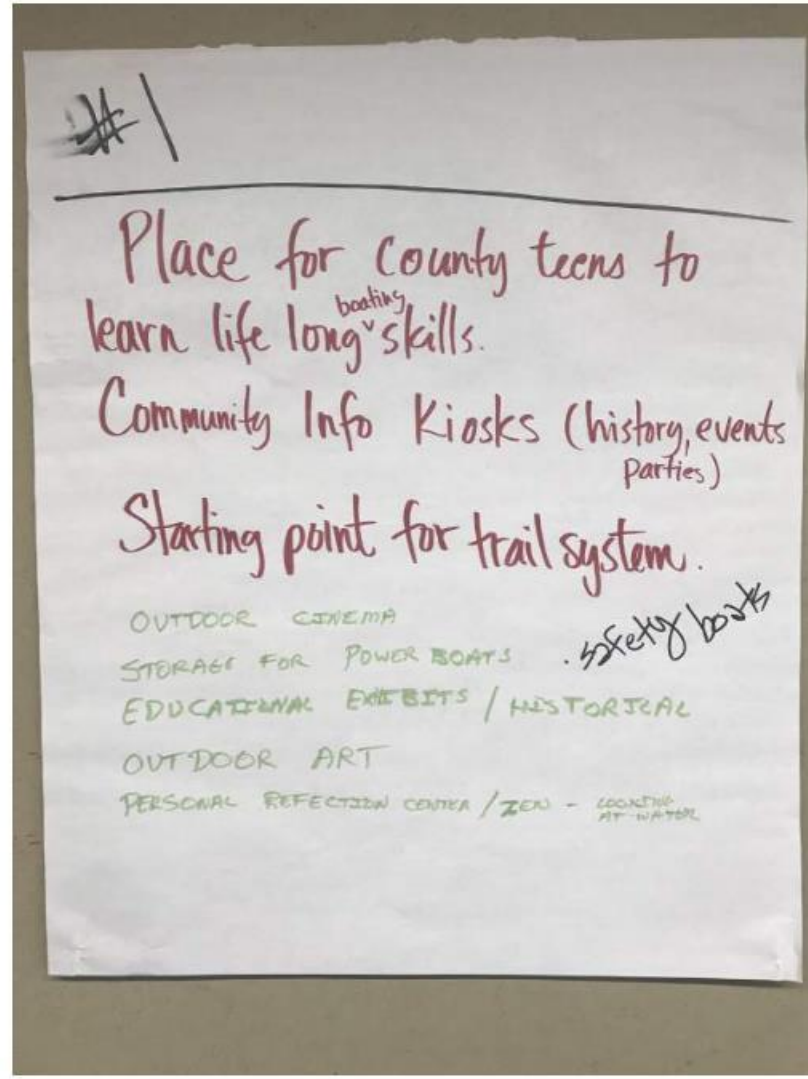 #1
Place for County teens to
learn life long boating skills.
Community Info Kiosks (history, events
parties)
Starting point for trail system.
OUTDOOR CINEMA
STORAGE FOR POWER BOATS
. safety boats
EDUCATIONAL EXHIBITS / HISTORICAL
OUTDOOR ART
PERSONAL REFECTION CENTER / ZEN - LOOKING
AT WATER